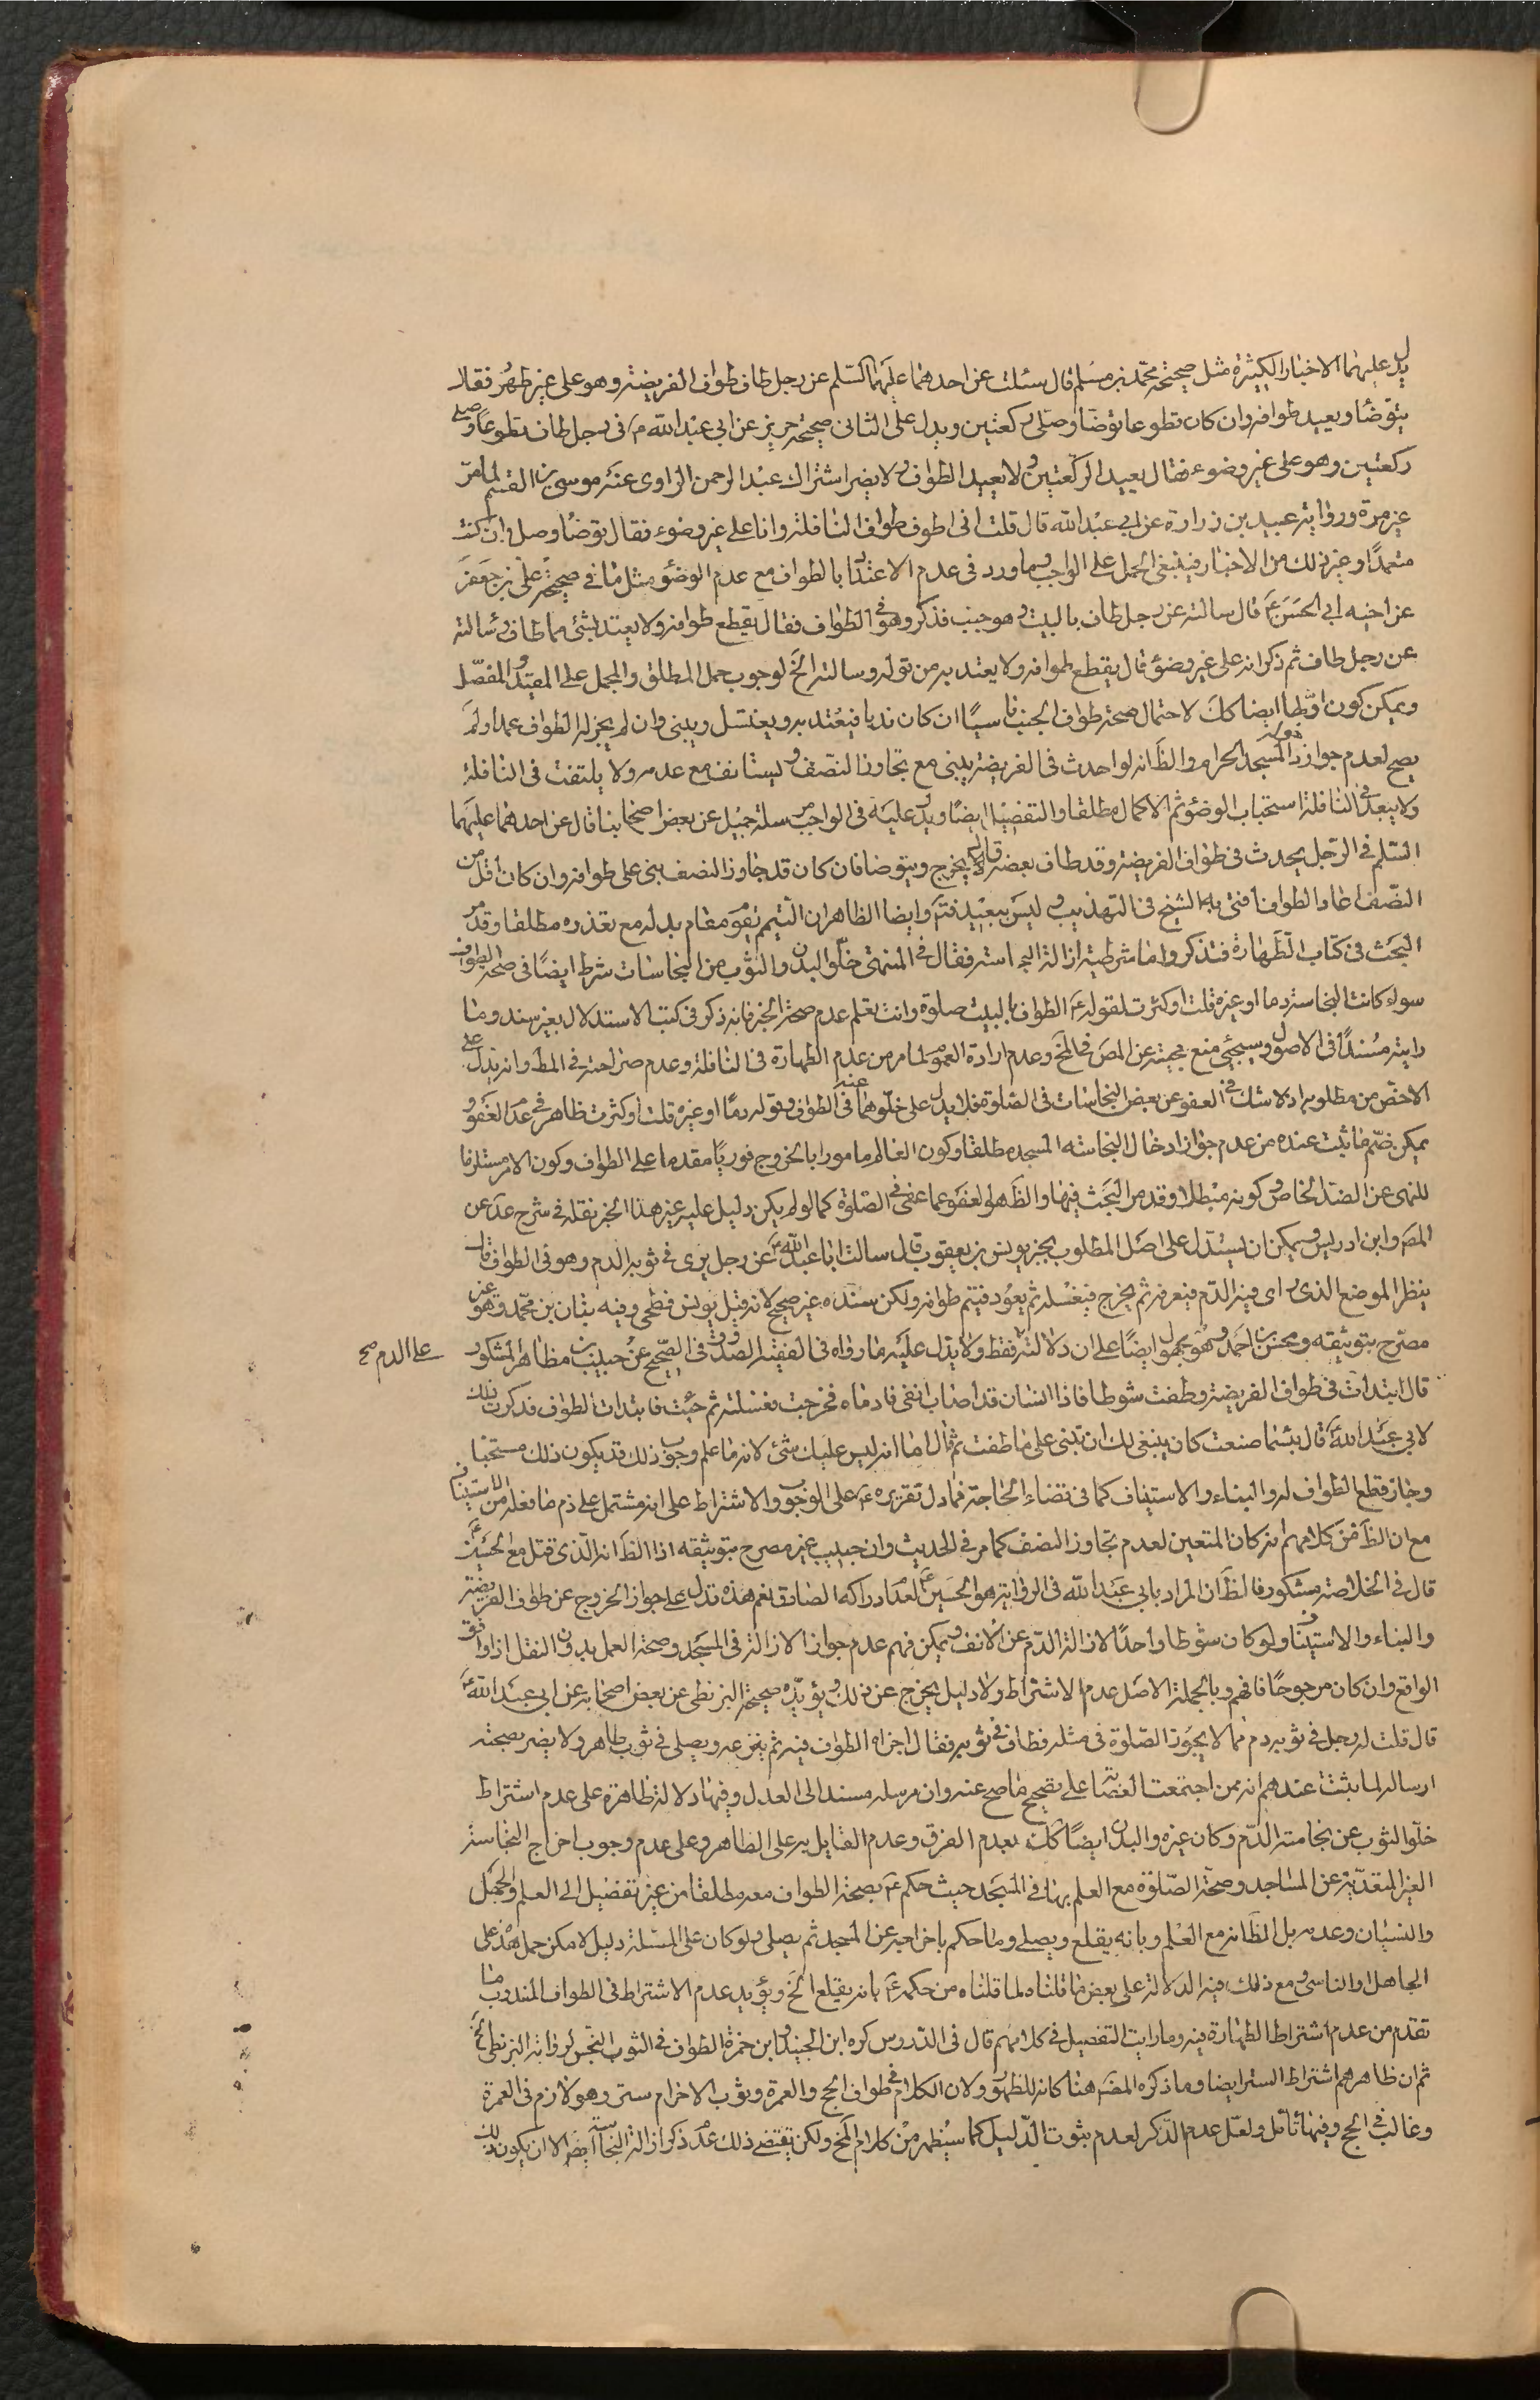 يدل عليهما الاخبار الكثيرة مثل صحيحة محمّد بن مسلم قال سئلت عن احدهما عليهما السّلم عن رجل طاف طواف الفريضة وهو على غير طهر فقال
يتوضّأ ويعيد طوافه وان كان تطوعا توضّأ وصلّى ركعتين ويدل على الثانى صحيحة حريز عن ابى عبد الله ع فى رجل طاف تطوعا وصلى
ركعتين وهو على غير وضوء فقال يعيد الركعتين ولا يعيد الطواف ولا يضر اشتراك عبد الرحمن الراوى عنه موسى بن القسم لما مرّ
غير مرة ورواية عبيد بن زرارة عن ابى عبد الله قال قلت انى اطوف طواف النافلة وانا على غير وضوء فقال توضأ وصل وان كنت
متعمدًا وغير ذلك من الاخبار فينبغى الحمل على الواجب وما ورد فى عدم الاعتداد بالطواف مع عدم الوضوء مثل ما فى صحيحة على بن جعفر
عن اخيه ابى الحسن ع قال سالته عن رجل طاف بالبيت وهو جنب فذكر وهو فى الطواف فقال يقطع طوافه ولا يعتد بشئ مما طاف وسالته
عن رجل طاف ثم ذكر انه على غير وضوء قال يقطع طوافه ولا يعتد به من قوله وسالته الخ لوجوب حمل المطلق والمجمل على المقيد والمفصّل
ويمكن كون اوّلها ايضا كك لاحتمال صحة طواف الجنب ناسيًا ان كان ندبا فيعتد به ويغتسل ويبنى وان لم يجز له الطواف عمدا ولم
يصح لعدم جواز دخوله المسجد الحرام والظَ انه لو احدث فى الفريضة يبنى مع تجاوز النصف ويستانف مع عدمه ولا يلتفت فى النافلة
ولا يبعد فى النافلة استحباب الوضوء ثم الاكمال مطلقا والتفضيل ايضًا ويدل عليه فى الواجب مرسلة جميل عن بعض اصحابنا قال عن احدهما عليهما
السّلم فى الرّجل يحدث فى طواف الفريضة وقد طاف بعضه قال يخرج ويتوضا فان كان قد جاوز النصف بنى على طوافه وان كان اقل من
النّصف اعاد الطواف افتى بها الشيخ فى التهذيب وليس ببعيد فتَم وايضا الظاهر ان التيمم يقوم مقام بدله مع تعذره مطلقا وقد مر
البحث فى كتاب الطهارة فتذكر واما شرطية ازالة النجاسة فقال فى المنتهى خلّو البدن والثوب من النجاسات شرط ايضًا فى صحة الطواف
سواء كانت النجاسة دما او غيره قلت او كثرت لقوله ع الطواف بالبيت صلوة وانت تعلم عدم صحة الخبر فانه ذكر فى كتب الاستدلال بغير سند وما
رايته مُسندًا فى الاصول وسيجئ منع حجيته عن المصَ فى الخَ وعدم ارادة العموم لما مر من عدم الطهارة فى النافلة وعدم صراحته فى المط وانه يدل على
الاخصّ من مطلوبه اذ لا شك فى العفو عن بعض النجاسات فى الصّلوة فلا يدل على خلّوهما عنه فى الطواف وقوله دمًا او غيره قلت او كثرت ظاهر فى عدم العفو و
يمكن ضمّ ما ثبت عنده من عدم جواز ادخال النجاسة المسجد مطلقا وكون العالم مامورا بالخروج فوريًا مقدما على الطواف وكون الامر مستلزما
للنهى عن الضد الخاص وكونه مبطلا وقد مر البحث فيها والظَ هو العفو عما عفى فى الصّلوة كما لو لم يكن دليل عليه غير هذا الخبر نقله فى شرح عد عن
المصَ وابن ادريس ويمكن ان يستدل على اصل المطلوب بخبر يونس بن يعقوب قال سالت ابا عبد الله ع عن رجل يرى فى ثوبه الدم وهو فى الطواف قال
ينظر الموضع الذى راى فيه الدّم فيعرفه ثم يخرج فيغسله ثم يعود فيتم طوافه ولكن سنده غير صحيح لانه قيل يونس فطحى وفيه بنان بن محمّد وهو غير
مصرّح بتوثيقه ومحسن بن احمد وهو مجهول ايضًا على ان دلالته فقط ولا يدل عليه ما رواه فى الفقيه الصدوق فى الصّحيح عن حبيب بن مظاهر المشكور
على الدم صح
قال ابتدأت فى طواف الفريضة وطفت شوطا فاذا انسان قد اصاب انفى فادماه فخرجت فغسلته ثم جئت فابتدات الطواف فذكرت ذلك
لابى عبد الله قال بئسما صنعت كان ينبغى لك ان تبنى على ما طفت ثم قال اما انه ليس عليك شئ لانه ما علم وجوب ذلك قد يكون ذلك مستحبا
وجاز قطع الطواف له والبناء والاستيناف كما فى قضاء الحاجة فما دل تقريره ع على الوجوب والاشتراط على انه مشتمل على ذم ما فعله من الاستيناف
مع ان الظَ من كلامهم انه كان المتعين لعدم تجاوز النصف كما مر فى الحديث وان حبيب غير مصرح بتوثيقه اذا الظَ انه الّذى قتل مع الحسين ع
قال فى الخلاصة مشكور فالظَ ان المراد بابى عبد الله فى الرواية هو الحسين ع لعدم ادراكه الصادق نعم هذه تدل على جواز الخروج عن طواف الفريضة
والبناء والاستيناف ولو كان شوطا واحدًا لازالة الدّم عن الانف ويمكن فهم عدم جواز الازالة فى المسجد وصحة العمل بدون النقل اذا وافق
الواقع وان كان مرجوحًا فافهم وبالجملة الاصل عدم الاشتراط ولا دليل يخرج عن ذلك ويؤيّده صحيحة البزنطى عن بعض اصحابه عن ابى عبد الله ع
قال قلت له رجل فى ثوبه دم مما لا يجوز الصّلوة فى مثله فطاف فى ثوبه فقال اجزاه الطواف فيه ثم ينزعه ويصلى فى ثوب طاهر ولا يضر بصحته
ارساله لما ثبت عندهم انه ممن اجتمعت العصابة على تصحيح ما صح عنه وان مرسله مسند الى العدل وفيها دلالة ظاهرة على عدم اشتراط
خلّو الثوب عن نجاسة الدّم وكان غيره والبدن ايضًا كك بعدم الفرق وعدم القايل به على الظاهر وعلى عدم وجوب اخراج النجاسة
الغير المتعدّية عن المساجد وصحة الصّلوة مع العلم بها فى المسجد حيث حكم ع بصحة الطواف معه مطلقا من غير تفصيل الى العلم والجهل
والنسيان وعدمه بل الظَ انه مع العلم وبانه يقلع ويصلى وما حكم باخراجه عن المسجد ثم يصلى ولو كان على المسئلة دليل لامكن حمل هذه على
الجاهل والناسى ومع ذلك فيه الدلالة على بعض ما قلناه لما قلناه من حكمه ع بانه يقلع الخَ ويؤيد عدم الاشتراط فى الطواف المندوب ما
تقدم من عدم اشتراط الطهارة فيه وما رايت التفصيل فى كلامهم قال فى الدّروس كره ابن الجنيد وابن حمزة الطواف فى الثوب النّجس لرواية البزنطى الخَ
ثم ان ظاهرهم اشتراط الستر ايضا وما ذكره المصَ هنا كانه للظهور ولان الكلام فى طواف الحج والعمرة وثوب الاحرام ستر وهو لازم فى العمرة
وغالب فى الحج وفيها تامّل ولعّل عدم الذّكر لعدم ثبوت الدّليل كما سيظهر من كلام الخَ ولكن يقتضى ذلك عدم ذكر ازالة النجاسة ايضا الا ان يكون ذلك